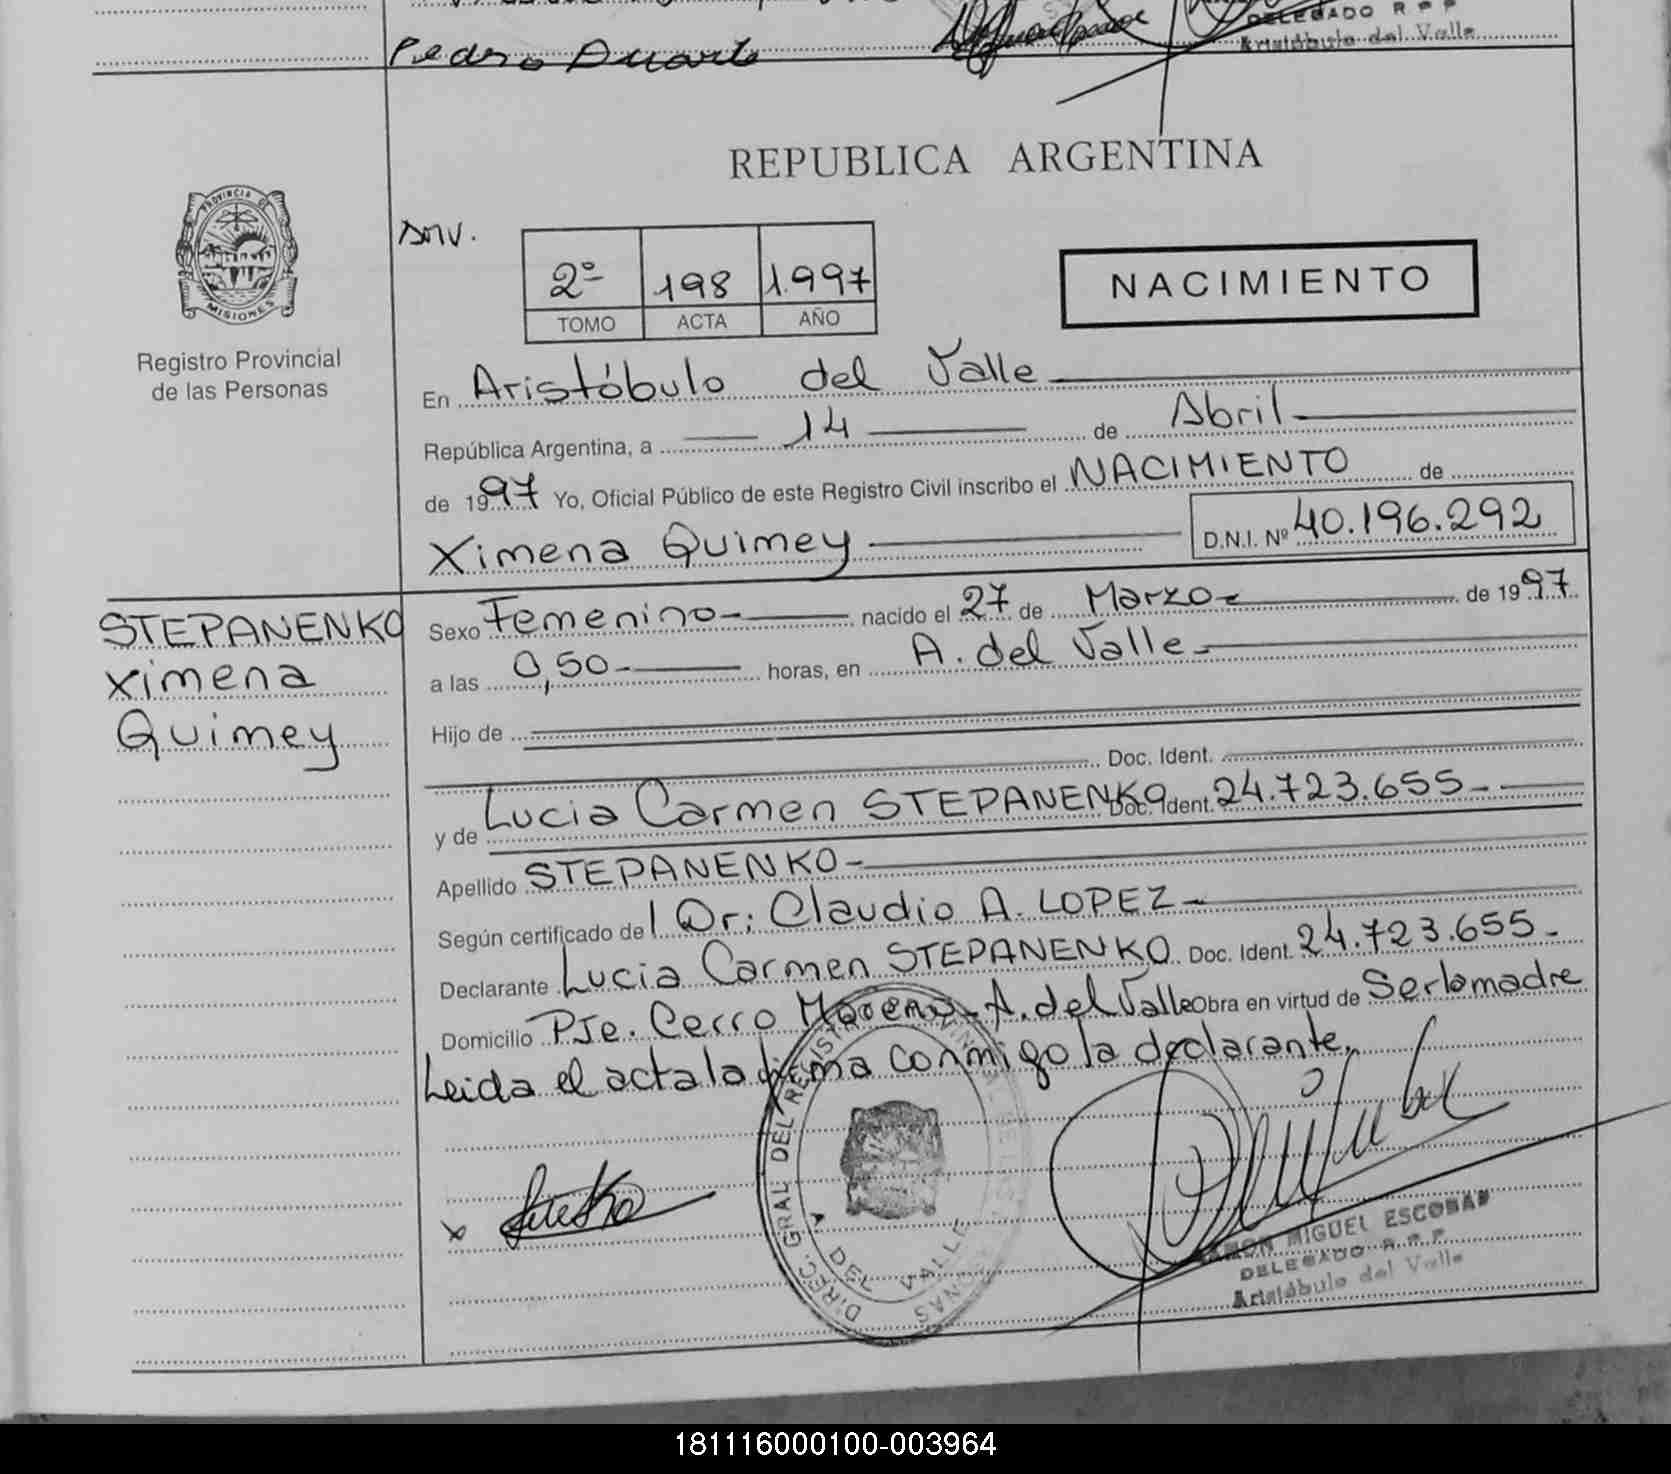 Pedro Duarte
DELEGADO R P P
Aristóbulo del Valle
REPUBLICA ARGENTINA
PROVINCIA DE
MISIONES
Registro Provincial
de las Personas
2º 198 1.997
TOMO ACTA AÑO
NACIMIENTO
En Aristóbulo del Valle
República Argentina, a 14 de Abril
de 1997 Yo, Oficial Público de este Registro Civil inscribo el NACIMIENTO de
Ximena Quimey D.N.I. Nº 40.196.292
STEPANENKO
Ximena
Quimey
Sexo Femenino nacido el 27 de Marzo de 1997
a las 0,50 horas, en A. del Valle
Hijo de
Doc. Ident.
y de Lucia Carmen STEPANENKO Doc. Ident. 24.723.655
Apellido STEPANENKO
Según certificado del Dr: Claudio A. LOPEZ
Declarante Lucia Carmen STEPANENKO Doc. Ident. 24.723.655
Domicilio PJe. Cerro Moreno A. del Valle Obra en virtud de Ser la madre
Leida el acta la firma conmigo la declarante.
x
DIREC. GRAL DEL REGIST
A DEL VALLE
RAMON MIGUEL ESCOBAR
DELEGADO R P P
Aristóbulo del Valle
181116000100-003964